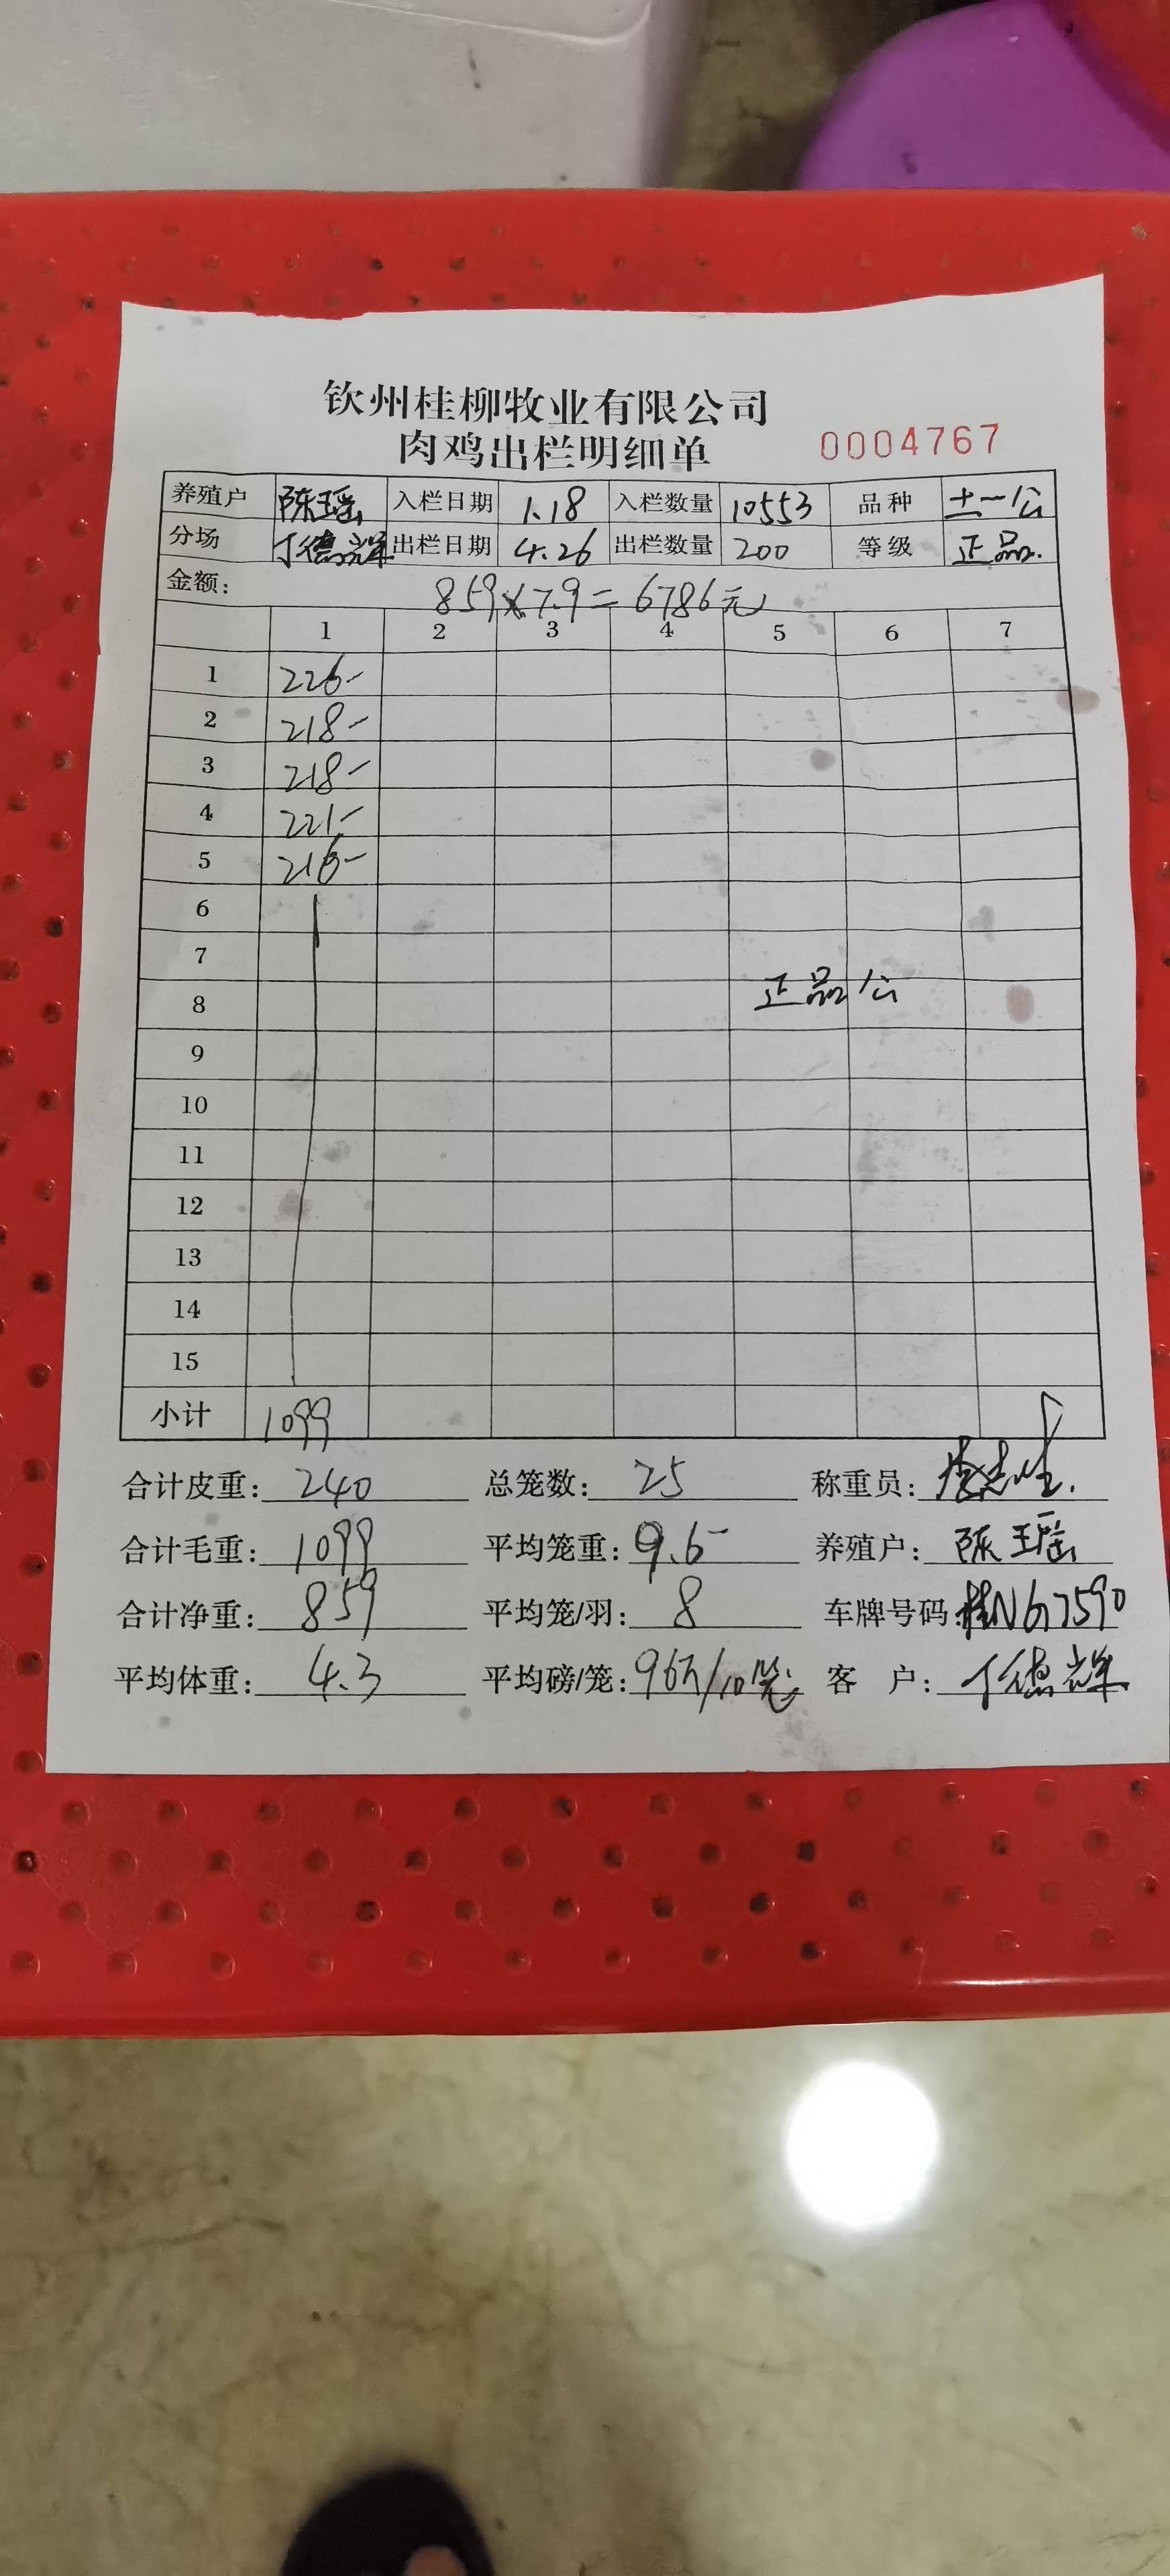 钦州桂柳牧业有限公司
肉鸡出栏明细单 0004767
养殖户 陈瑶 入栏日期 1.18 入栏数量 10553 品种 土一公
分场 丁德辉 出栏日期 4.26 出栏数量 200 等级 正品.
金额: 859×7.9=6786元
1 2 3 4 5 6 7
1 226-
2 218-
3 218-
4 221-
5 216-
6
7
8 正品公
9
10
11
12
13
14
15
小计 1099
合计皮重: 240 总笼数: 25 称重员:
合计毛重: 1099 平均笼重: 9.6- 养殖户: 陈瑶
合计净重: 859 平均笼/羽: 8 车牌号码: 桂N67590
平均体重: 4.3 平均磅/笼: 96斤/10笼 客 户: 丁德辉